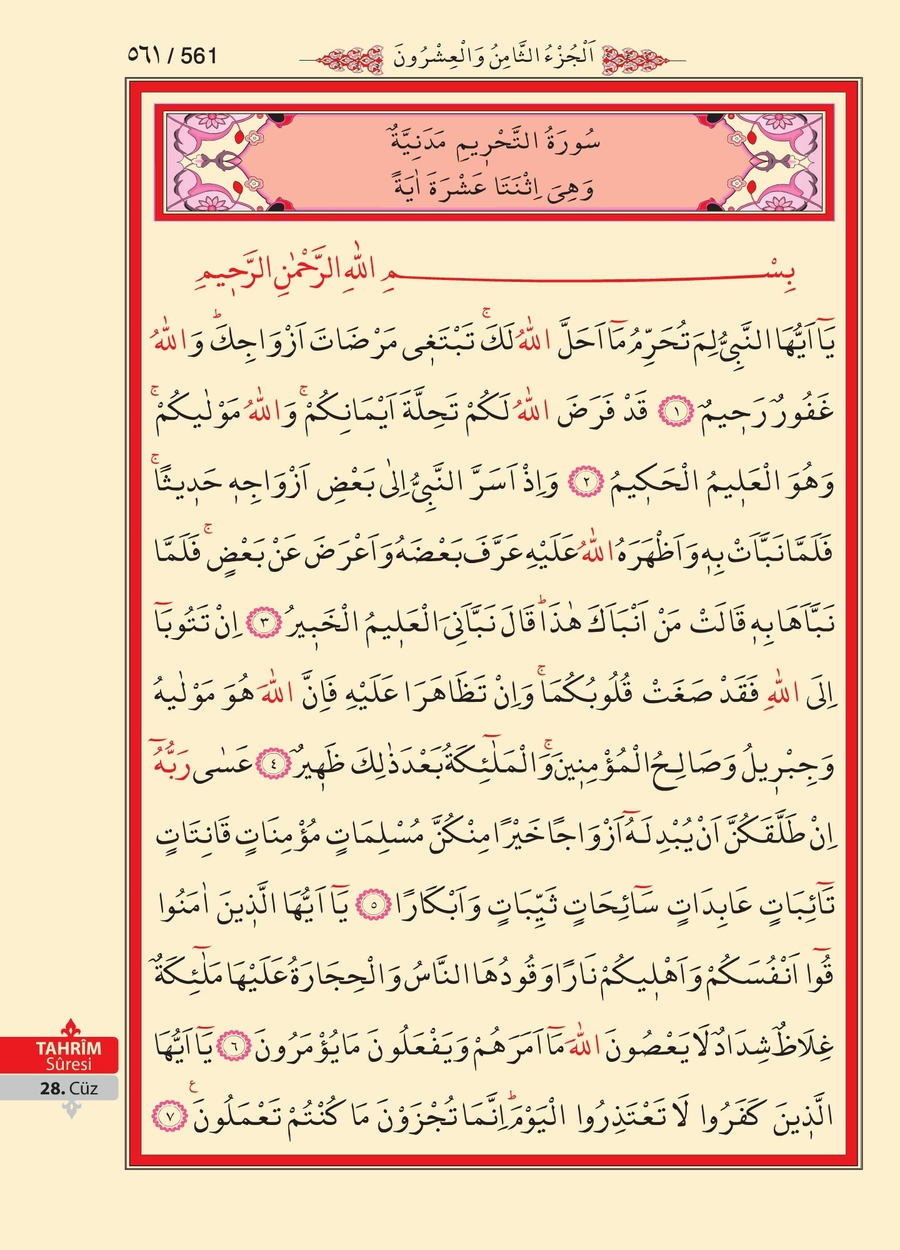 ٥٦١ / 561
اَلْجُزْءُ الثَّامِنُ وَالْعِشْرُونَ
سُورَةُ التَّحْرٖيمِ مَدَنِيَّةٌ
وَهِىَ اِثْنَتَا عَشْرَةَ اٰيَةً
بِسْمِ اللّٰهِ الرَّحْمٰنِ الرَّحٖيمِ
يَٓا اَيُّهَا النَّبِىُّ لِمَ تُحَرِّمُ مَٓا اَحَلَّ اللّٰهُ لَكَۚ تَبْتَغٖى مَرْضَاتَ اَزْوَاجِكَؕ وَاللّٰهُ
غَفُورٌ رَحٖيمٌ ﴿١﴾ قَدْ فَرَضَ اللّٰهُ لَكُمْ تَحِلَّةَ اَيْمَانِكُمْۚ وَاللّٰهُ مَوْلٰيكُمْۚ
وَهُوَ الْعَلٖيمُ الْحَكٖيمُ ﴿٢﴾ وَاِذْ اَسَرَّ النَّبِىُّ اِلٰى بَعْضِ اَزْوَاجِهٖ حَدٖيثًاۚ
فَلَمَّا نَبَّاَتْ بِهٖ وَاَظْهَرَهُ اللّٰهُ عَلَيْهِ عَرَّفَ بَعْضَهُ وَاَعْرَضَ عَنْ بَعْضٍۚ فَلَمَّا
نَبَّاَهَا بِهٖ قَالَتْ مَنْ اَنْبَاَكَ هٰذَاؕ قَالَ نَبَّاَنِىَ الْعَلٖيمُ الْخَبٖيرُ ﴿٣﴾ اِنْ تَتُوبَٓا
اِلَى اللّٰهِ فَقَدْ صَغَتْ قُلُوبُكُمَاۚ وَاِنْ تَظَاهَرَا عَلَيْهِ فَاِنَّ اللّٰهَ هُوَ مَوْلٰيهُ
وَجِبْرٖيلُ وَصَالِحُ الْمُؤْمِنٖينَۚ وَالْمَلٰٓئِكَةُ بَعْدَ ذٰلِكَ ظَهٖيرٌ ﴿٤﴾ عَسٰى رَبُّهُٓ
اِنْ طَلَّقَكُنَّ اَنْ يُبْدِلَهُٓ اَزْوَاجًا خَيْرًا مِنْكُنَّ مُسْلِمَاتٍ مُؤْمِنَاتٍ قَانِتَاتٍ
تَٓائِبَاتٍ عَابِدَاتٍ سَٓائِحَاتٍ ثَيِّبَاتٍ وَاَبْكَارًا ﴿٥﴾ يَٓا اَيُّهَا الَّذٖينَ اٰمَنُوا
قُٓوا اَنْفُسَكُمْ وَاَهْلٖيكُمْ نَارًا وَقُودُهَا النَّاسُ وَالْحِجَارَةُ عَلَيْهَا مَلٰٓئِكَةٌ
غِلَاظٌ شِدَادٌ لَا يَعْصُونَ اللّٰهَ مَٓا اَمَرَهُمْ وَيَفْعَلُونَ مَا يُؤْمَرُونَ ﴿٦﴾ يَٓا اَيُّهَا
الَّذٖينَ كَفَرُوا لَا تَعْتَذِرُوا الْيَوْمَؕ اِنَّمَا تُجْزَوْنَ مَا كُنْتُمْ تَعْمَلُونَ ع ﴿٧﴾
TAHRÎM
Sûresi
28. Cüz